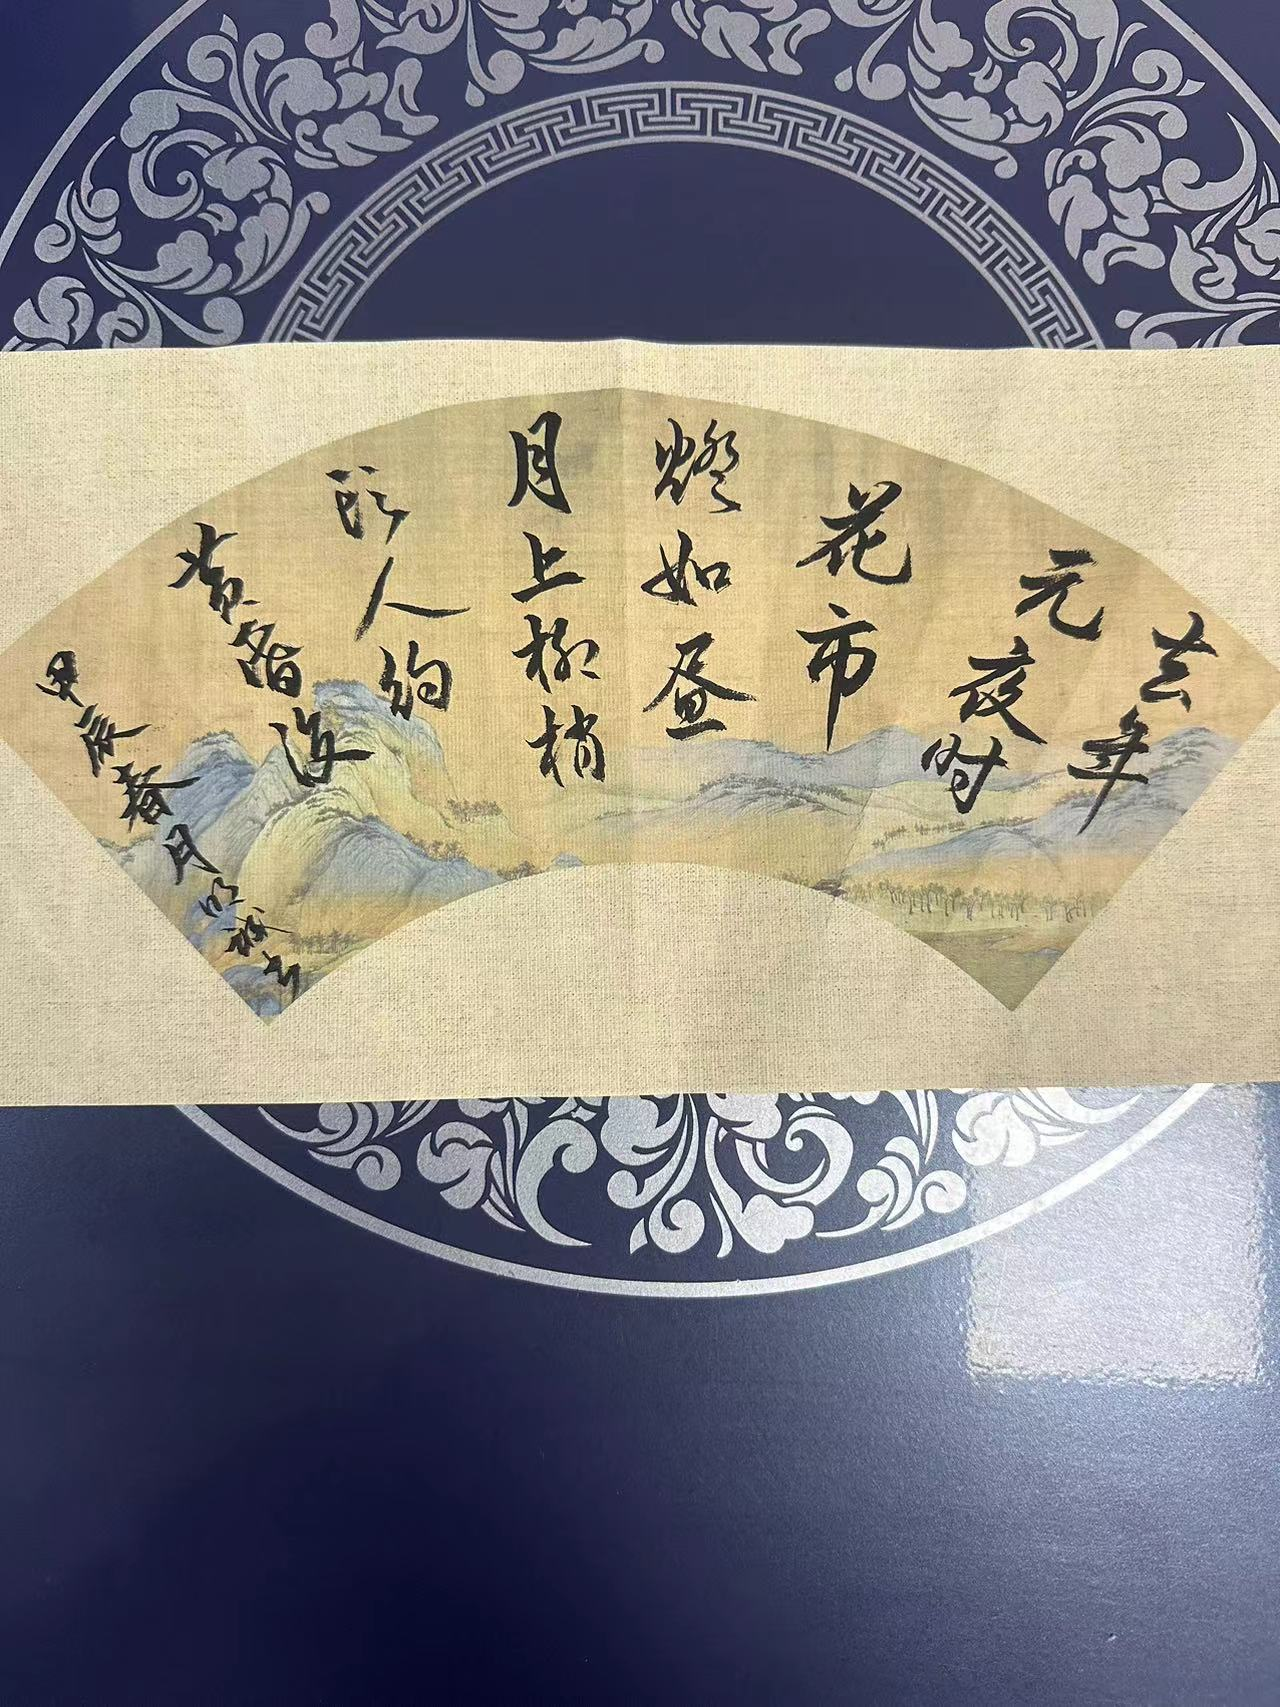 去年
元夜时
花市
燈如昼
月上柳梢
头人约
黄昏後
甲辰春月